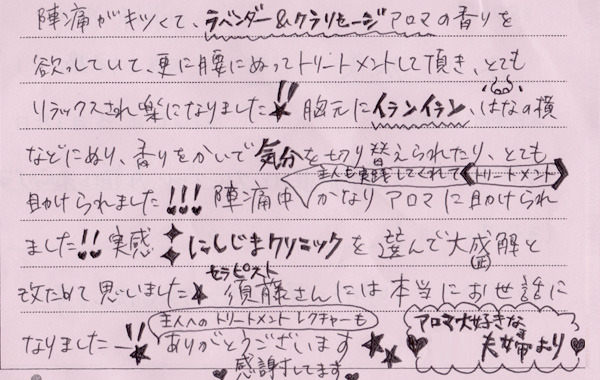 陣痛がキツくて、ラベンダー&クラリセージアロマの香りを
欲っしていて、更に腰にぬってトリートメントして頂き、とても
リラックスされ楽になりました!!★ 胸元にイランイラン、はなの横
などにぬり、香りをかいで気分を切り替えられたり、とても
主人も実践してくれて《トリートメント》
助けられました!!!陣痛中かなりアロマに助けられ
ました!!実感✦にしじまクリニックを選んで大成解と
(正)
セラピスト
改ためて思いました★ 須藤さんには本当にお世話に
主人へのトリートメントレクチャーも
なりましたー!!★ ありがとうございます
感謝してます♥
アロマ大好きな♥
♥夫婦より